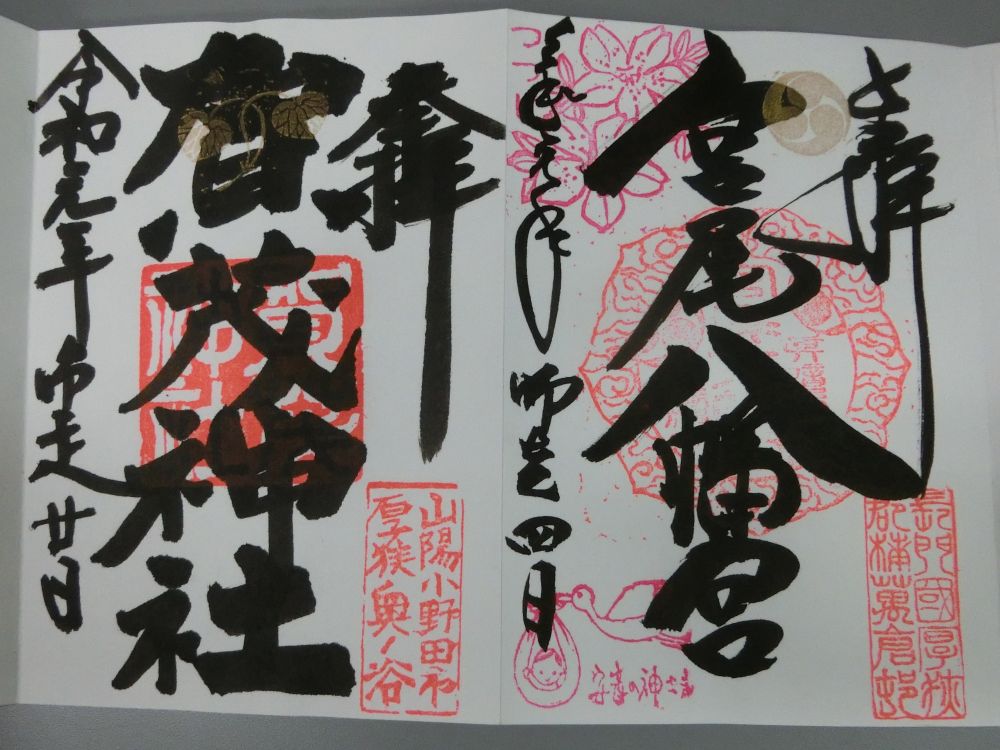 奉拝
宮尾八幡宮
令和元年 師走 四日
長門國厚狭
郡楠萬倉邨
安産の神さま
奉拝
賀茂神社
山陽小野田市
厚狭奥ノ谷
令和元年 師走 廿日